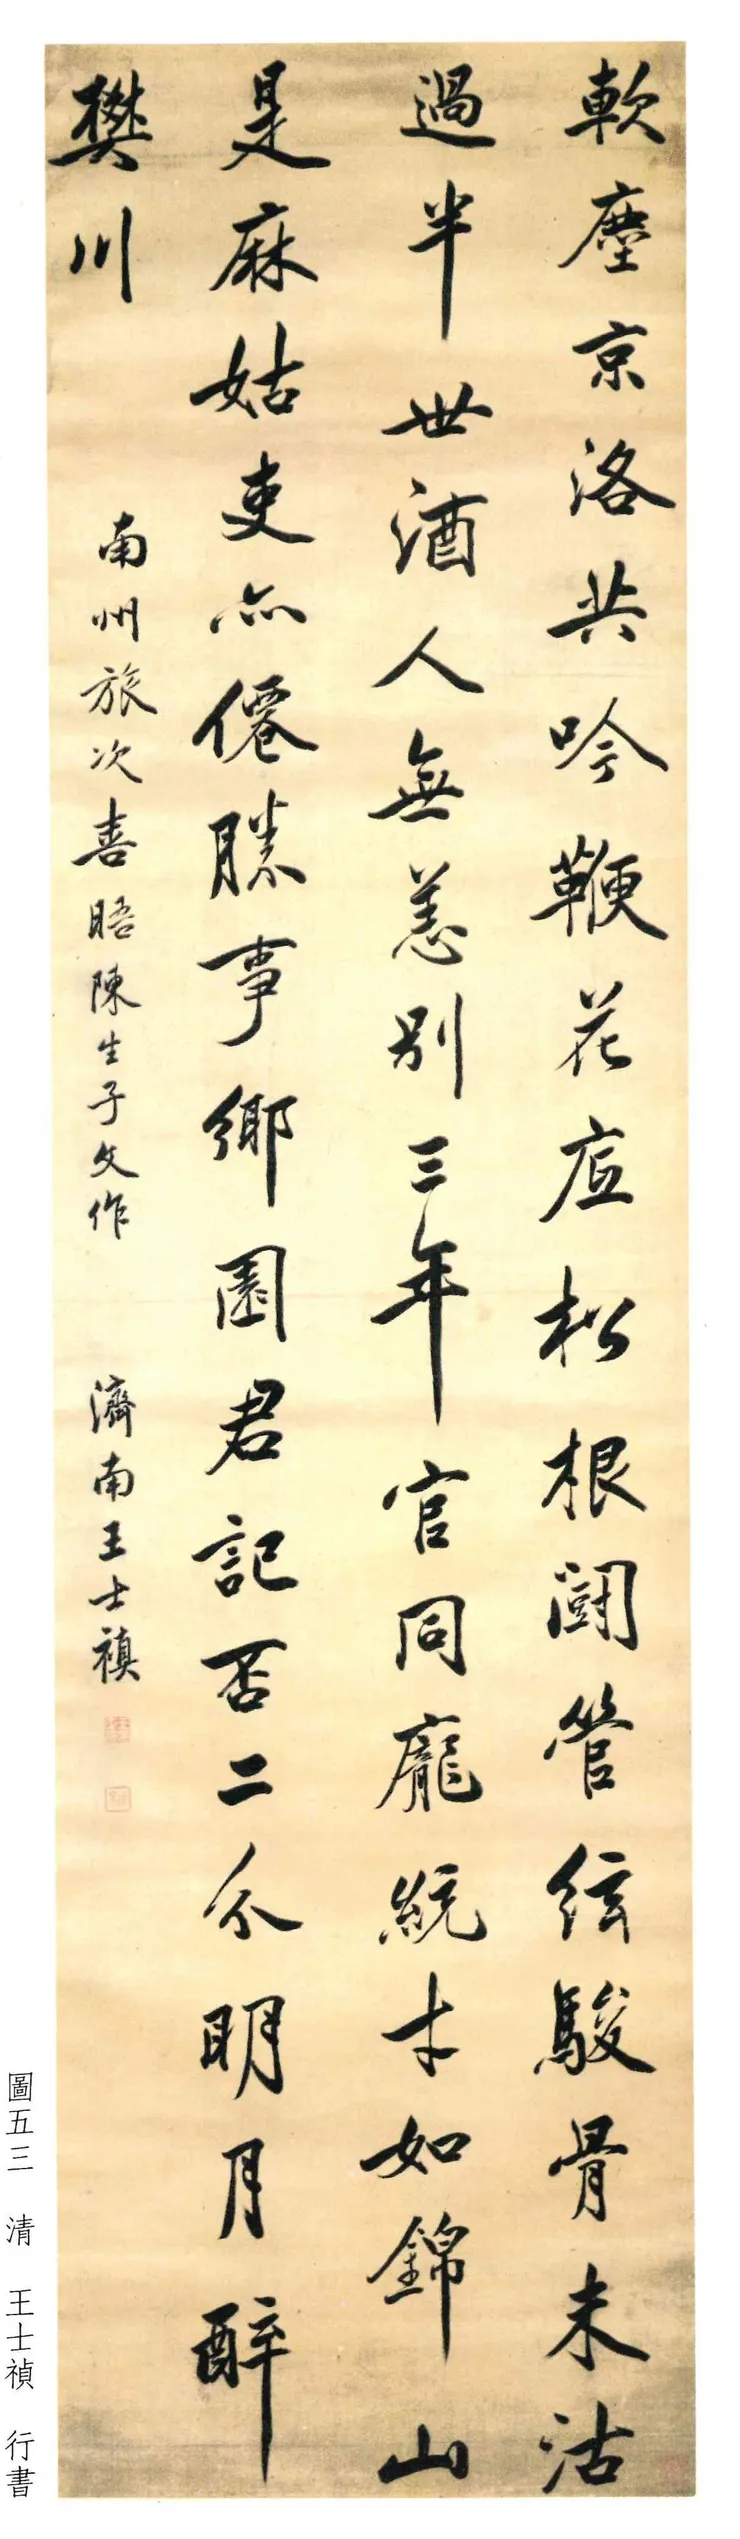 軟塵京洛共吟鞭花底松根闘管絃駿骨未沽
過半世酒人無恙別三年官同龐統才如錦山
是麻姑吏亦僊勝事鄉園君記否二分明月醉
樊川
南州旅次喜晤陳生子文作 濟南王士禛
圖五三 清 王士禎 行書